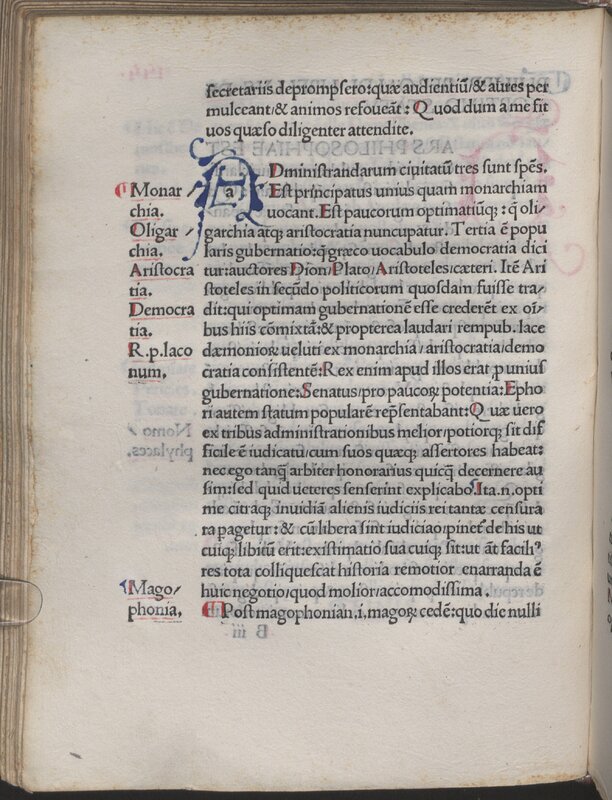 secretariis deprompsero:quæ audientiũ/& aures per
mulceant/& animos refoueãt: Quod dum a me fit
uos quæso diligenter attendite.
ADministrandarum ciuitatũ tres sunt spẽs.
Est principatus unius quam monarchiam
uocant. Est paucorum optimatiũq; : q̃ oli/
garchia atq; aristocratia nuncupatur. Tertia ẽ popu
laris gubernatio:q̃ græco uocabulo democratia dici
tur:auctores Dion/Plato/Aristoteles/cæteri. Itẽ Ari
stoteles in secũdo politicorum quosdam fuisse tra/
dit:qui optimam gubernationẽ esse crederẽt ex oĩ/
bus hiis cõmixtã:& propterea laudari rempub. lace
dæmonioꝝ ueluti ex monarchia/aristocratia/demo
cratia consistentẽ:Rex enim apud illos erat ꝓ unius
gubernatione:Senatus/pro paucoꝝ potentia:Epho
ri autem statum popularẽ rep̃sentabant: Quæ uero
ex tribus administrationibus melior/potiorq; sit dif
ficile ẽ iudicatu/cum suos quæq; assertores habeat:
nec ego tanq̃ arbiter honorarius quicq̃ decernere au
sim:sed quid ueteres senserint explicabo. Ita.n.opti
me citraq; inuidiã alienis iudiciis rei tantæ censura
ra pagetur: & cũ libera sint iudicia
cuiq; libitũ erit:existimatio sua cuiq; sit:ut aũt faciliꝰ
res tota colliquescat historia remotior enarranda ẽ
huic negotio/quod molior/accomodissima.
¶Post magophonian.i.magoꝝ cedẽ:quo die nulli
¶Monar/
chia.
Oligar/
chia.
Aristocra
tia.
Democra
tia.
R.p.laco
num.
¶Mago/
phonia.